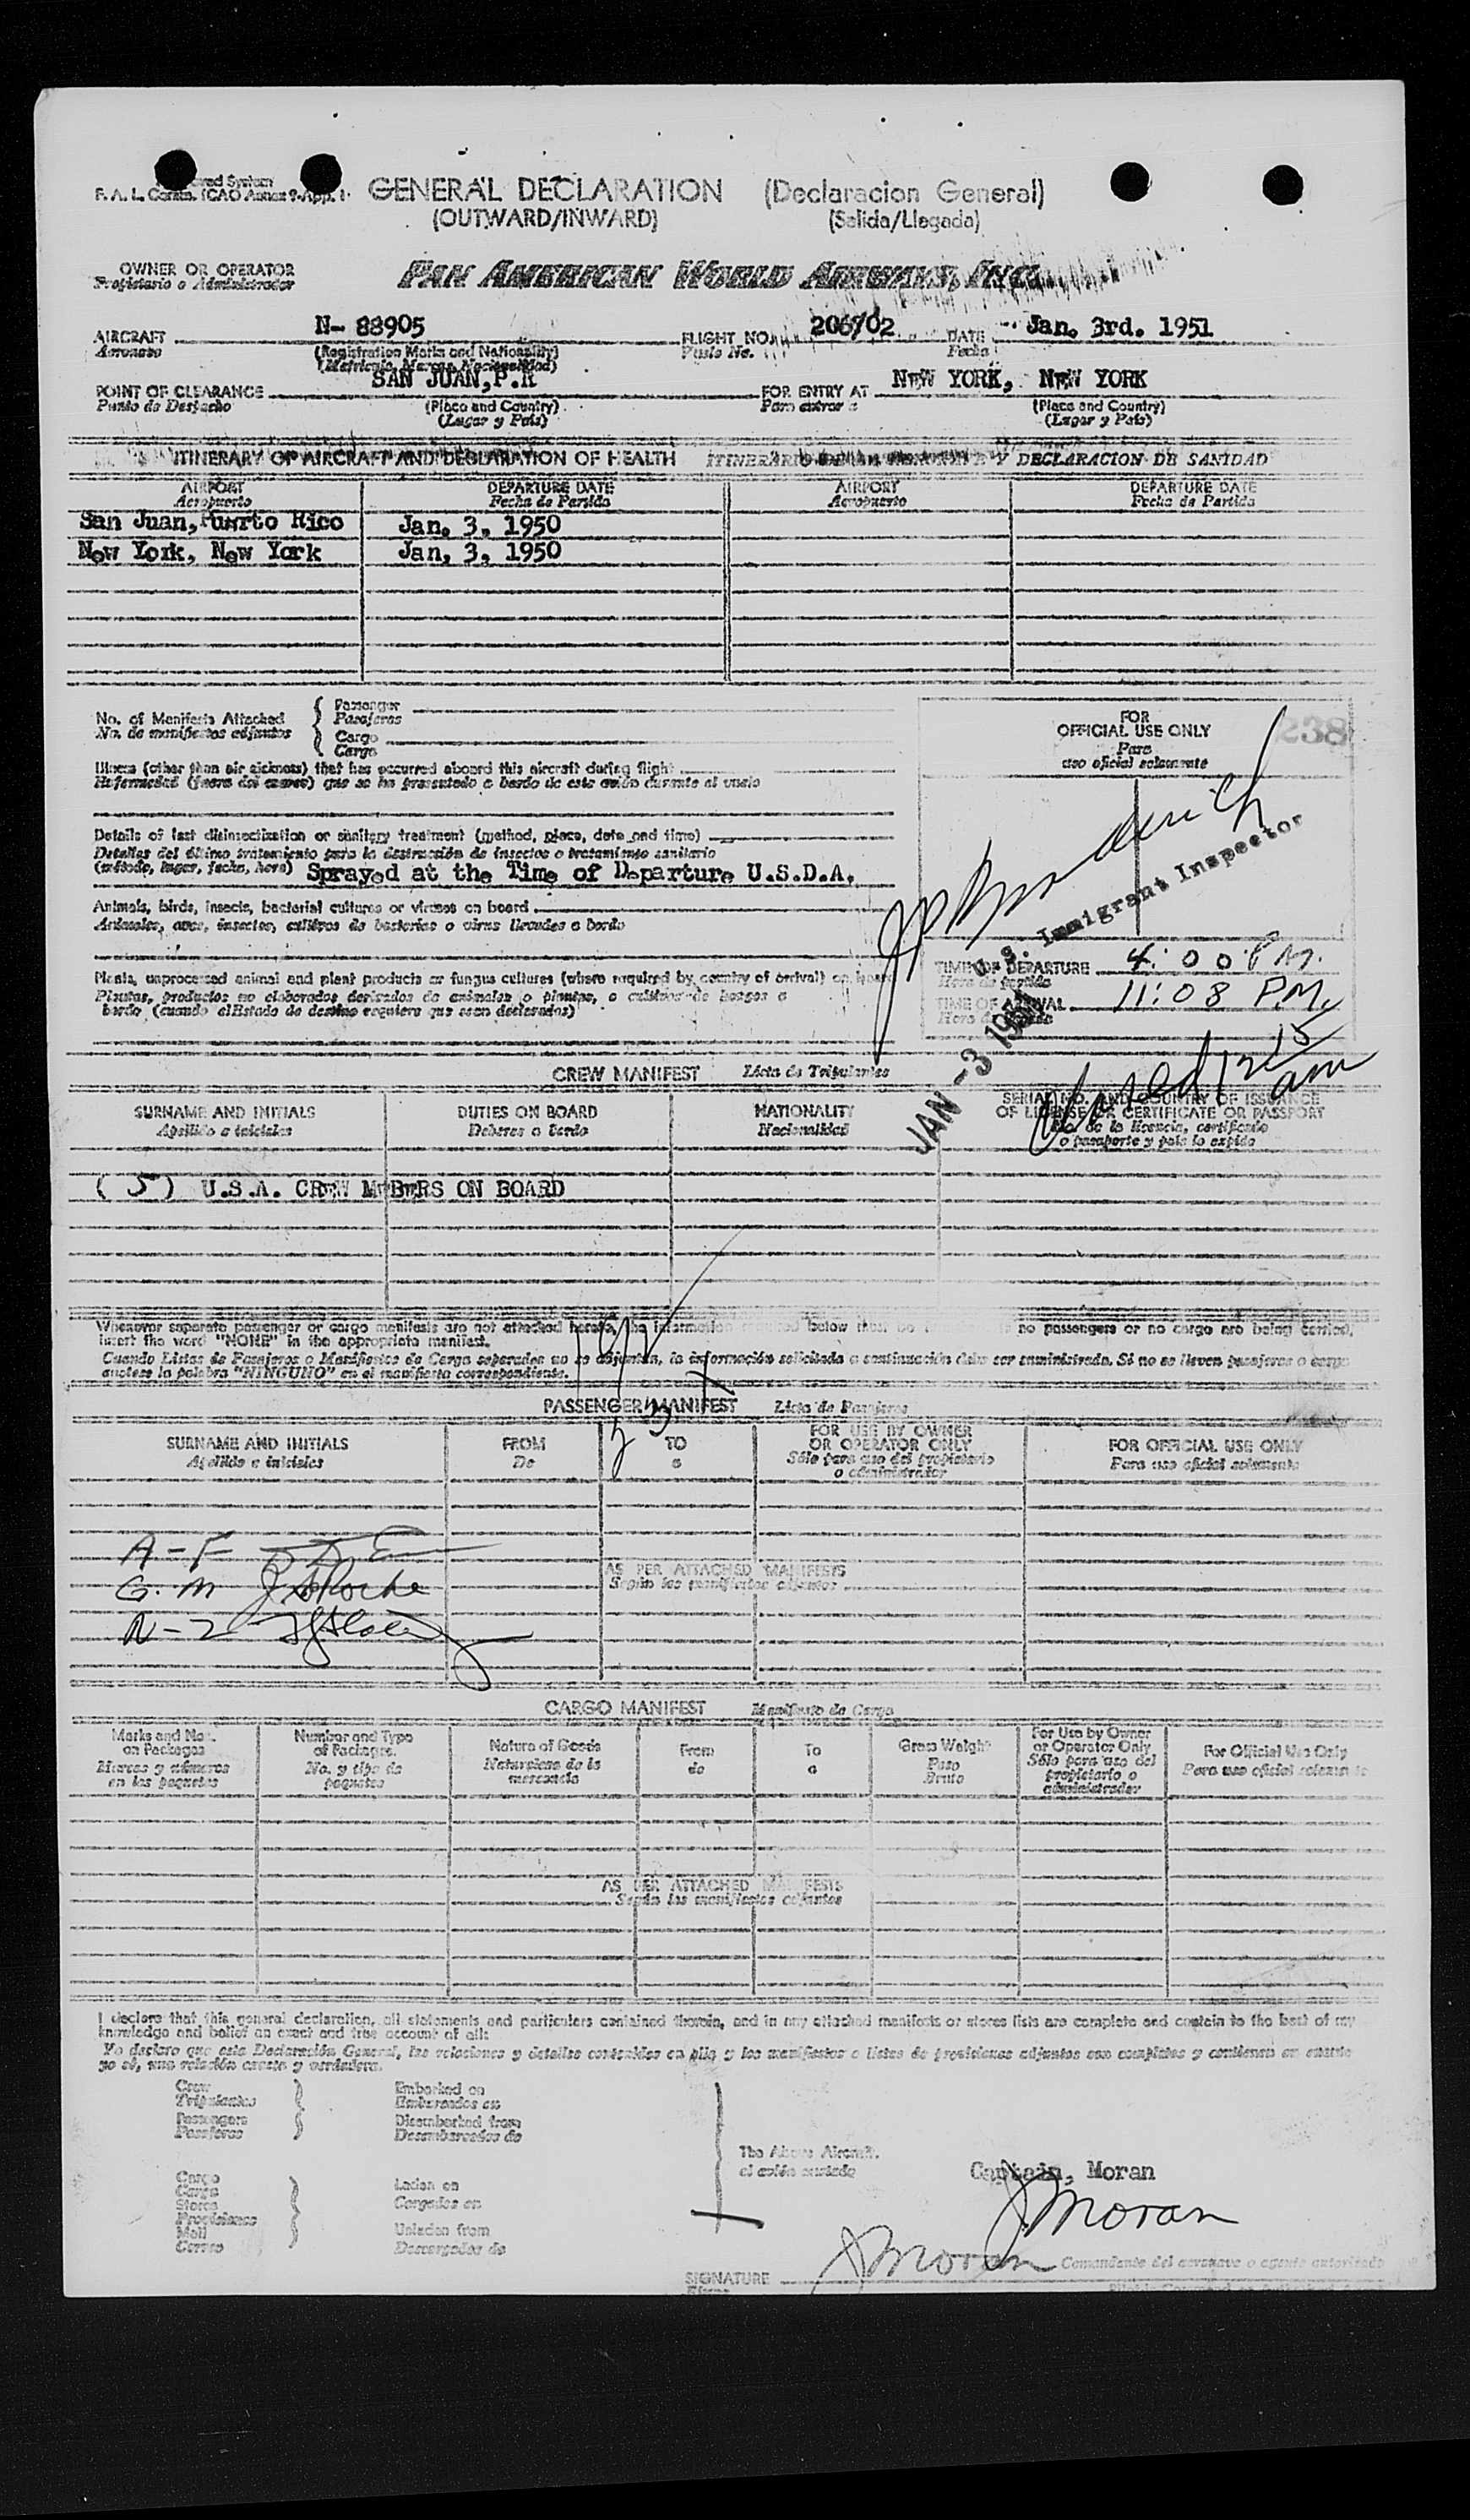 F. A. L. Comm. ICAO Annex 9-App. 1
GENERAL DECLARATION (Declaracion General)
(OUTWARD/INWARD) (Salida/Llegada)
OWNER OR OPERATOR
Propietario o Administrador
PAN AMERICAN WORLD AIRWAYS, INC.
AIRCRAFT N- 88905 FLIGHT NO. 206/02 DATE Jan. 3rd. 1951
Aeronave (Registration Marks and Nationality) Vuelo No. Fecha
(Matricula, Marcas, Nacionalidad)
POINT OF CLEARANCE SAN JUAN,P.R FOR ENTRY AT NEW YORK, NEW YORK
Punto de Despacho (Place and Country) Para entrar a (Place and Country)
(Lugar y País) (Lugar y País)
ITINERARY OF AIRCRAFT AND DECLARATION OF HEALTH Y DECLARACION DE SANIDAD
AIRPORT DEPARTURE DATE AIRPORT DEPARTURE DATE
Aeropuerto Fecha de Partida Aeropuerto Fecha de Partida
San Juan, Puerto Rico Jan. 3, 1950
New York, New York Jan, 3, 1950
No. of Manifests Attached
No. de manifiestos adjuntos
Passenger
Pasajeros
Cargo
Carga
FOR
OFFICIAL USE ONLY
Para
uso oficial solamente
238
Illness (other than air sickness) that has occurred aboard this aircraft during flight
Enfermedad (fuera del mareo) que se ha presentado a bordo de este avión durante el vuelo
Details of last disinsectization or sanitary treatment (method, place, date and time)
Detalles del último tratamiento para la destrucción de insectos o tratamiento sanitario
(método, lugar, fecha, hora) Sprayed at the Time of Departure U.S.D.A.
Animals, birds, insects, bacterial cultures or viruses on board
Animales, aves, insectos, cultivos de bacterias o virus llevados a bordo
Plants, unprocessed animal and plant products or fungus cultures (where required by country of arrival) on board
Plantas, productos no elaborados derivados de animales o plantas, o cultivos de hongos a
bordo (cuando el Estado de destino requiera que sean declarados)
U. S. Immigrant Inspector
JAN -3 1951
TIME OF DEPARTURE 4:00 P.M.
Hora de partida
TIME OF ARRIVAL 11:08 P.M.
12 15 am
CREW MANIFEST Lista de Tripulantes
SURNAME AND INITIALS DUTIES ON BOARD NATIONALITY SERIAL NO. AND COUNTRY OF ISSUANCE
OF LICENSE OR CERTIFICATE OR PASSPORT
Apellido e iniciales Deberes a bordo Nacionalidad No. de la licencia, certificado
o pasaporte y país lo expido
( 5 ) U.S.A. CREW MEBERS ON BOARD
Whenever separate passenger or cargo manifests are not attached hereto, the information required below must be no passengers or no cargo are being carried,
insert the word "NONE" in the appropriate manifest.
Cuando Listas de Pasajeros o Manifiestos de Carga separados no se adjuntan, la información solicitada a continuación debe ser suministrada. Si no se llevan pasajeros o carga
anótese la palabra "NINGUNO" en el manifiesto correspondiente.
PASSENGER MANIFEST Lista de Pasajeros
SURNAME AND INITIALS FROM TO FOR USE BY OWNER
OR OPERATOR ONLY FOR OFFICIAL USE ONLY
Apellido e iniciales De a Sólo para uso del propietario
o administrador Para uso oficial solamente
A - F
G. M
N - Z
AS PER ATTACHED MANIFESTS
Según los manifiestos adjuntos
CARGO MANIFEST Manifiesto de Carga
Marks and Nos.
on Packages
Marcas y números
en los paquetes
Number and Type
of Packages.
No. y tipo de
paquetes
Nature of Goods
Naturaleza de la
mercancía
From
de
To
a
Gross Weight
Peso
Bruto
For Use by Owner
or Operator Only
Sólo para uso del
propietario o
administrador
For Official Use Only
Para uso oficial solamente
AS PER ATTACHED MANIFESTS
Según los manifiestos adjuntos
I declare that this general declaration, all statements and particulars contained therein, and in any attached manifests or stores lists are complete and contain to the best of my
knowledge and belief an exact and true account of all:
Yo declaro que esta Declaración General, las relaciones y detalles contenidos en ella y los manifiestos o listas de provisiones adjuntos son completos y contienen en cuanto
yo sé, una relación exacta y verdadera.
Crew
Tripulantes
Passengers
Pasajeros
Embarked on
Embarcados en
Disembarked from
Desembarcados de
Cargo
Carga
Stores
Provisiones
Mail
Correo
Laden on
Cargados en
Unladen from
Descargados de
The Above Aircraft.
el avión
Captain, Moran
J Moran
J Moran
Comandante del aeronave o agente autorizado
SIGNATURE